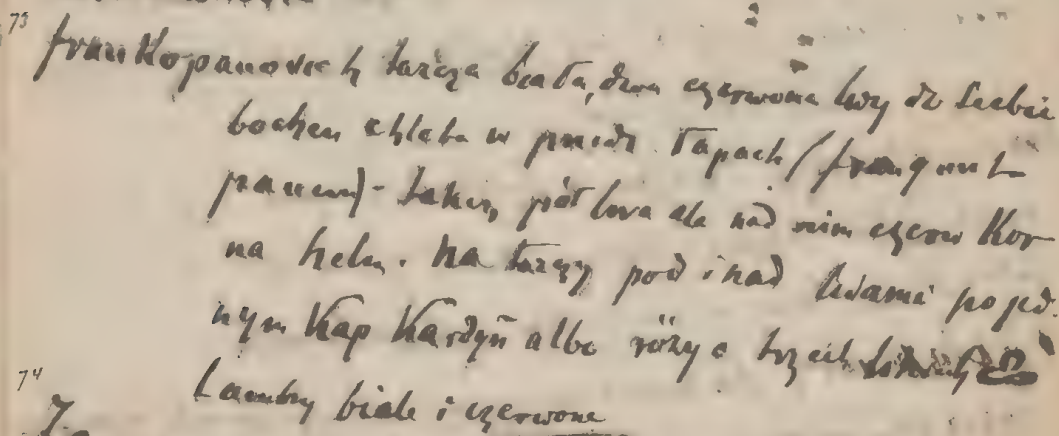 73
frankopanowie tarcza biała, dwa czerwone lwy do siebie
bochen chleba w przed. łapach (frangunt
panem) - takiż pół lwa ale nad nim czerw kor
na hełm. Na tarczy pod i nad lwami po jed.
nym kap kardyn albo róży o trzech
74
Lambry białe i czerwone